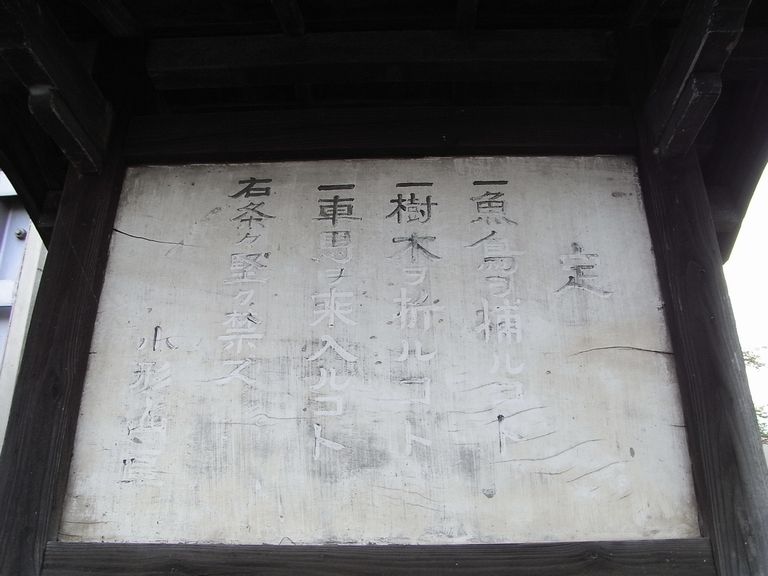 定
一魚鳥ヲ捕ルコト
一樹木ヲ折ルコト
一車馬ヲ乗入ルコト
右条々堅ク禁ズ
小形山